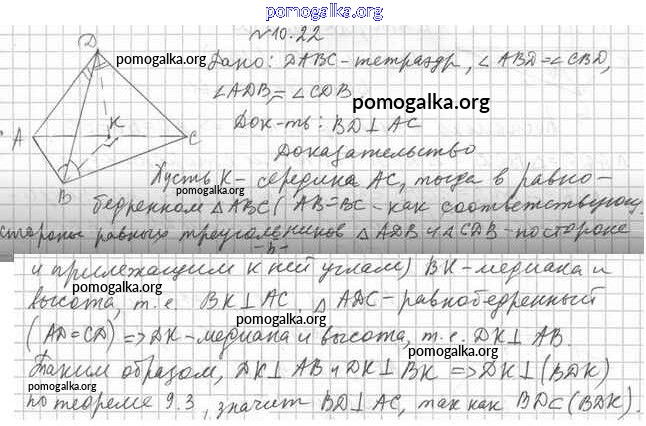 pomogalka.org
№10.22
D
pomogalka.org
Дано: DABC-тетраэдр, ∠ABD=∠CBD,
∠ADB=∠CDB
pomogalka.org
A K C
Док-ть: BD⊥AC
Доказательство
B
pomogalka.org
Пусть K- середина AC, тогда в равно-
бедренном △ABC (AB=BC - как соответствующ.
стороны равных треугольников △ADB и △CDB - по стороне
и прилежащим к ней углам) BK-медиана и
pomogalka.org
высота, т.е. BK⊥AC. △ADC-равнобедренный
pomogalka.org
(AD=CD) => DK-медиана и высота, т.е. DK⊥AB.
pomogalka.org
Таким образом, DK⊥AB и DK⊥BK => DK⊥(BDK)
pomogalka.org
по теореме 9.3, значит BD⊥AC, так как BD⊂(BDK).
pomogalka.org